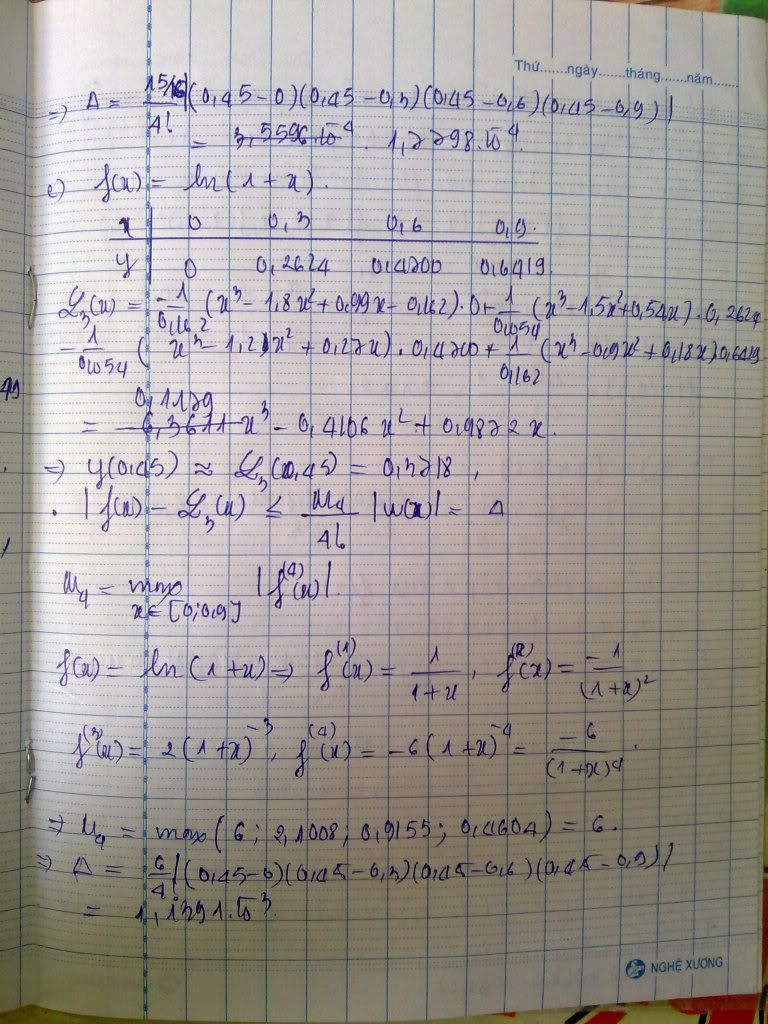 Thứ.......ngày......tháng......năm.......
=> Δ = 1516/4! |(0,45-0)(0,45-0,3)(0,45-0,6)(0,45-0,9)|
= 3,5596.10^-4 . 1,7798.10^-4.
c) f(x) = ln(1+x).
x | 0 0,3 0,6 0,9.
y | 0 0,2624 0,4700 0,6419
L₃(x) = -1/0,162 (x³-1,8x²+0,99x-0,162).0+ 1/0,054 (x³-1,5x²+0,54x).0,2624
-1/0,054 (x³-1,2x²+0,27x).0,470+ 1/0,162 (x³-0,9x²+0,18x)0,6419
0,1179
= 6,3611 x³ - 0,4106 x² + 0,9872 x.
=> y(0,45) ≈ L₃(0,45) = 0,3718,
. |f(x) - L₃(x)| ≤ M₄/4! |w(x)| = Δ
M₄ = max x∈[0;0,9] |f^(4)(x)|.
f(x) = ln(1+x) => f^(1)(x) = 1/(1+x), f^(2)(x) = -1/(1+x)²
f^(3)(x) = 2(1+x)^-3, f^(4)(x) = -6(1+x)^-4 = -6/(1+x)^4.
=> M₄ = max(6; 2,1008; 0,9155; 0,4604) = 6.
=> Δ = 6/4! |(0,45-0)(0,45-0,3)(0,45-0,6)(0,45-0,9)|
= 1,1391.10^-3.
NGHỆ XƯƠNG